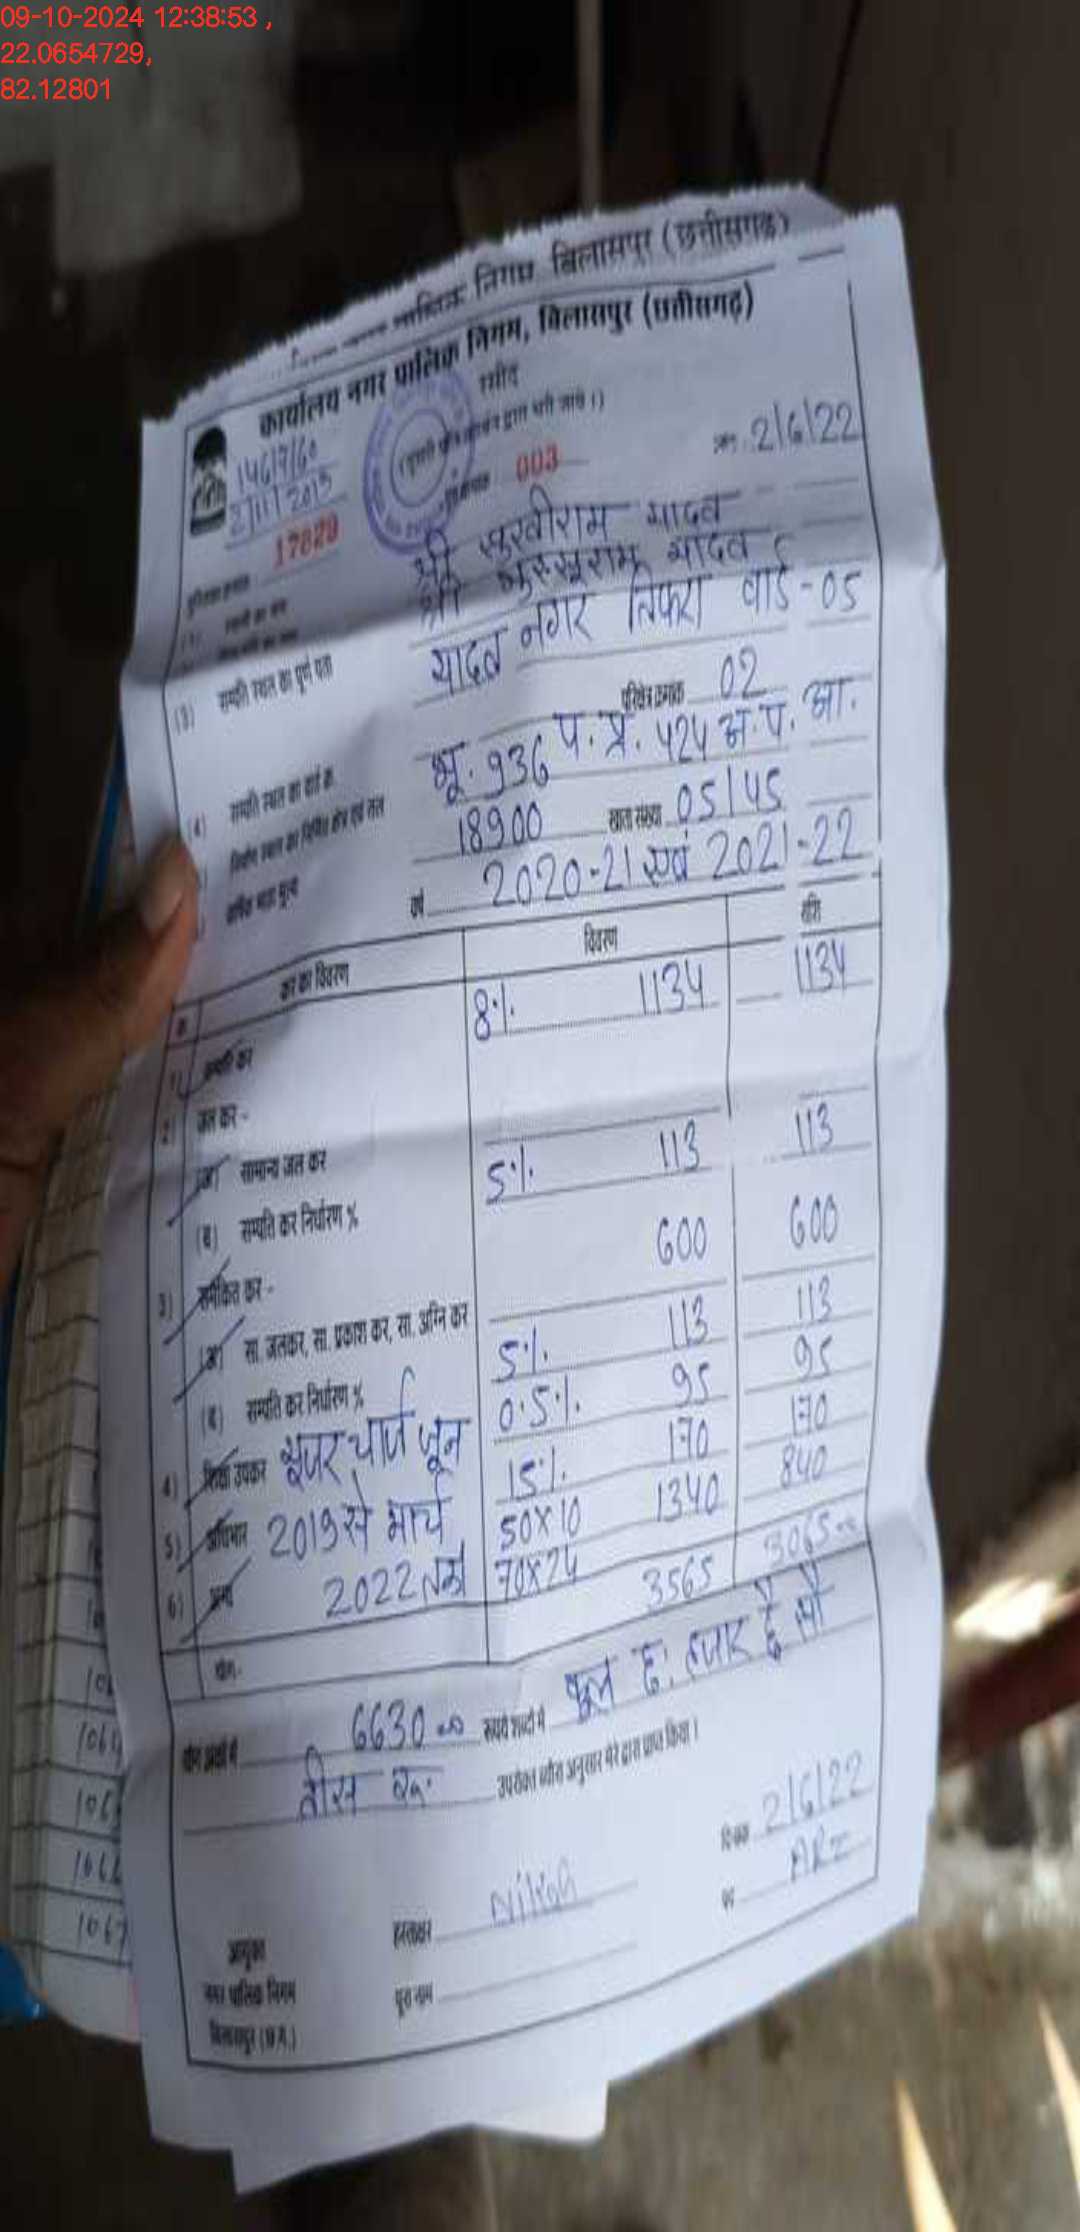 09-10-2024 12:38:53 ,
22.0654729,
82.12801
पालिक निगम बिलासपुर (छत्तीसगढ़)
कार्यालय नगर पालिक निगम, बिलासपुर (छत्तीसगढ़)
रसीद
2/11/2013
003
2/6/22
17829
श्री सुखीराम यादव
श्री भुरुखूराम यादव
(3) सम्पत्ति स्थल का पूर्ण पता यादव नगर तिफरा वार्ड-05
(4) सम्पत्ति स्थल का वार्ड क्र. परिक्षेत्र क्रमांक 02
भू. 936 प. प्र. 424 अ. प. आ.
वार्षिक भाड़ा मूल्य 18900 खाता संख्या 05/45
वर्ष 2020-21 एवं 2021-22
क्र. कर का विवरण विवरण राशि
1) सम्पत्ति कर 8% 1134 1134
2) जल कर -
(अ) सामान्य जल कर
(ब) सम्पत्ति कर निर्धारण % 5% 113 113
3) समेकित कर - 600 600
(अ) सा. जलकर, सा. प्रकाश कर, सा. अग्नि कर
(ब) सम्पत्ति कर निर्धारण % 5% 113 113
4) शिक्षा उपकर 0.5% 95 95
यूजर चार्ज जून
5) अधिभार 2019 से मार्च 15% 170 170
6) अन्य 2022 तक 50x10 1340 840
70x24
योग- 3565 3065=00
योग अंकों में 6630=00 रूपये शब्दों में कुल छः हजार छै सौ
तीस रू. उपरोक्त ब्यौरा अनुसार मेरे द्वारा प्राप्त किया।
दिनांक 2/6/22
हस्ताक्षर Nitish पद ARI
आयुक्त
नगर पालिक निगम पूरा नाम
बिलासपुर (छ.ग.)